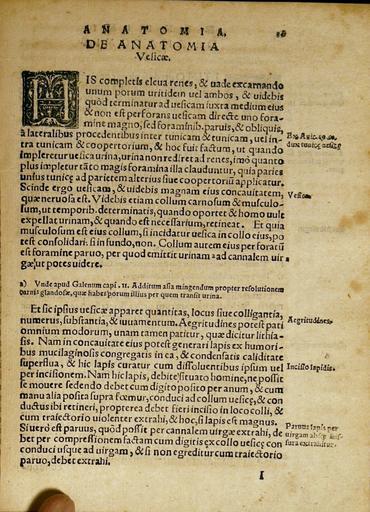 ANATOMIA.
DE ANATOMIA
Vesicæ.
HIS completis eleua renes, & uade excarnando
unum porum uritidem uel ambos, & uidebis
quòd terminatur ad uesicam iuxta medium eius
& non est perforans uesicam directe uno fora-
mine magno, sed foraminib. paruis, & obliquis,
à lateralibus procedentibus inter tunicam & tunicam, uel in-
tra tunicam & coopertorium, & hoc fuit factum, ut quando
impleretur uesica urina, urina non rediret ad renes, imò quanto
plus impletur tãto magis foramina illa clauduntur, quia paries
unius tunicę ad parietem alterius siue coopertorii applicatur.
Scinde ergo uesicam, & uidebis magnam eius concauitatem,
quæ neruosa est. Videbis etiam collum carnosum & musculo-
sum, ut temporib. determinatis, quando oportet & homo uult
expellat urinam, & quando est necessarium, retineat. Et quia
musculosum est eius collum, si incidatur uesica in collo eius, po
test consolidari. si in fundo, non. Collum autem eius perforatũ
est foramine paruo, per quod emittit urinam ad cannalem uir-
gæ, ut potes uidere.
Vesica.
a) Vnde apud Galenum capi. 11. Additum asia mingendum propter resolutionem
carnis glandosæ, quæ habet porum illius per quem transit urina.
Et sic ipsius uesicæ apparet quantitas, locus siue colligantia,
numerus, substantia, & iuuamentum. Aegritudines potest pati
omnium modorum, unam tamen patitur, quæ dicitur lithia-
sis. Nam in concauitate eius potest generari lapis ex humori-
bus mucilaginosis congregatis in ea, & condensatis caliditate
superflua, & hic lapis curatur cum dissoluentibus ipsum uel
per incisionem. Nam hic lapis, debite situato homine, ne possit
se mouere sedendo debet cum digito posito per anum, & cum
manu alia posita supra fœmur, conduci ad collum uesicę, & con
ductus ibi retineri, propterea debet fieri incisio in loco colli, &
cum traiectorio uiolenter extrahi, & hoc, si lapis est magnus.
Si uerò est paruus, quòd possit per cannalem uirgæ extrahi, de
bet per compressionem factam cum digitis ex collo uesicę con
duci usque ad uirgam, & si non egreditur cum traiectorio
paruo, debet extrahi.
Aegritudines.
Incisio lapidis.
Paruus lapis per
uirgam absq; inci-
sura extrahitur.
I